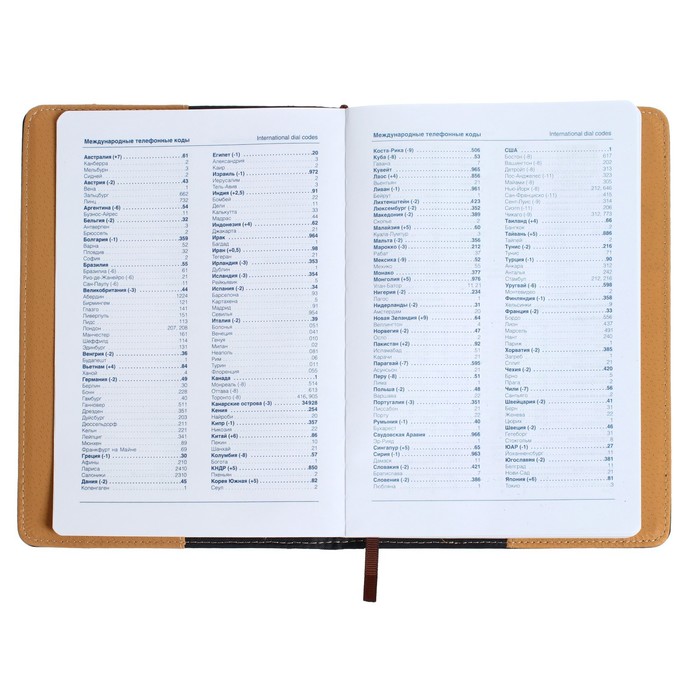 Международные телефонные коды
International dial codes
Австралия (+7) 61
Канберра 2
Мельбурн 3
Сидней 2
Австрия (-2) 43
Вена 1
Зальцбург 662
Линц 732
Аргентина (-6) 54
Буэнос-Айрес 11
Бельгия (-2) 32
Антверпен 3
Брюссель 2
Болгария (-1) 359
Варна 52
Пловдив 32
София 2
Бразилия 55
Бразилиа (-6) 61
Рио-де-Жанейро (-6) 21
Сан-Паулу (-6) 11
Великобритания (-3) 44
Абердин 1224
Бирмингем 121
Глазго 141
Ливерпуль 151
Лидс 113
Лондон 207, 208
Манчестер 161
Шеффилд 114
Эдинбург 131
Венгрия (-2) 36
Будапешт 1
Вьетнам (+4) 84
Ханой 4
Германия (-2) 49
Берлин 30
Бонн 228
Гамбург 40
Ганновер 511
Дрезден 351
Дуйсбург 203
Дюссельдорф 211
Кельн 221
Лейпциг 341
Мюнхен 89
Франкфурт на. Майне 69
Греция (-1) 30
Афины 210
Лариса 2410
Салоники 2310
Дания (-2) 45
Копенгаген 1
Египет (-1) 20
Александрия 3
Каир 2
Израиль (-1) 972
Иерусалим 2
Тель-Авив 3
Индия (+2,5) 91
Бомбей 22
Дели 11
Калькутта 33
Мадрас 44
Индонезия (+4) 62
Джакарта 21
Ирак 964
Багдад 1
Иран (+0,5) 98
Тегеран 21
Ирландия (-3) 353
Дублин 1
Исландия (-3) 354
Рейкьявик 5
Испания (-2) 34
Барселона 93
Картахена 5
Мадрид 91
Севилья 954
Италия (-2) 39
Болонья 051
Венеция 041
Генуя 010
Милан 02
Неаполь 081
Рим 06
Турин 011
Флоренция 055
Канада 1
Монреаль (-8) 514
Оттава (-8) 613
Торонто (-8) 416, 905
Канарские острова (-3) 34928
Кения 254
Найроби 20
Кипр (-1) 357
Никозия 22
Китай (+6) 86
Пекин 10
Шанхай 21
Колумбия (-8) 57
Богота 1
КНДР (+5) 850
Пхеньян 2
Корея Южная (+5) 82
Сеул 2
Международные телефонные коды
International dial codes
Коста-Рика (-9) 506
Куба (-8) 53
Гавана 7
Кувейт 965
Лаос (+4) 856
Вьентьян
Ливан (-1) 961
Бейрут 1
Лихтенштейн (-2) 423
Люксембург (-2) 352
Македония (-2) 389
Скопье 2
Малайзия (+5) 60
Куала-Лумпур 3
Мальта (-2) 356
Марокко (-3) 212
Рабат 37
Мексика (-9) 52
Мехико 55
Монако 377
Монголия (+5) 976
Улан-Батор 11, 21
Нигерия (-2) 234
Лагос 1
Нидерланды (-2) 31
Амстердам 20
Новая Зеландия (+9) 64
Веллингтон 4
Норвегия (-2) 47
Осло 2
Пакистан (+2) 92
Исламабад
Карачи 21
Парагвай (-7) 595
Асунсьон 21
Перу (-8) 51
Лима 1
Польша (-2) 48
Варшава 22
Португалия (-3) 351
Лиссабон 21
Порту 22
Румыния (-1) 40
Бухарест
Саудовская Аравия 966
Эр-Рияд 1
Сингапур (+5) 65
Сирия (-1) 963
Дамаск 11
Словакия (-2) 421
Братислава
Словения (-2) 386
Любляна 1
США 1
Бостон (-8) 617
Вашингтон (-8) 202
Детройт (-8) 313
Лос-Анджелес (-11) 323
Майами (-8) 305
Нью-Йорк (-8) 212, 646
Сан-Франциско (-11) 415
Сент-Луис (-9) 314
Сиэтл (-11) 206
Чикаго (-9) 312, 773
Таиланд (+4) 66
Бангкок 2
Тайвань (+5) 886
Тайпей 2
Тунис (-2) 216
Тунис 71
Турция (-1) 90
Анкара 312
Анталья 242
Стамбул 212, 216
Уругвай (-6) 598
Монтевидео 2
Финляндия (-1) 358
Хельсинки 9
Франция (-2) 33
Бордо 556
Лион 437
Марсель 491
Нант 240
Париж 1
Хорватия (-2) 385
Загреб 1
Чехия (-2) 420
Брно 5
Прага 2
Чили (-7) 56
Сантьяго 2
Швейцария (-2) 41
Берн 31
Женева 22
Цюрих 1
Швеция (-2) 46
Гетеборг 31
Стокгольм 8
ЮАР (-1) 27
Йоханнесбург 11
Югославия (-2) 381
Белград 11
Нови-Сад 21
Япония (+6) 81
Токио 3